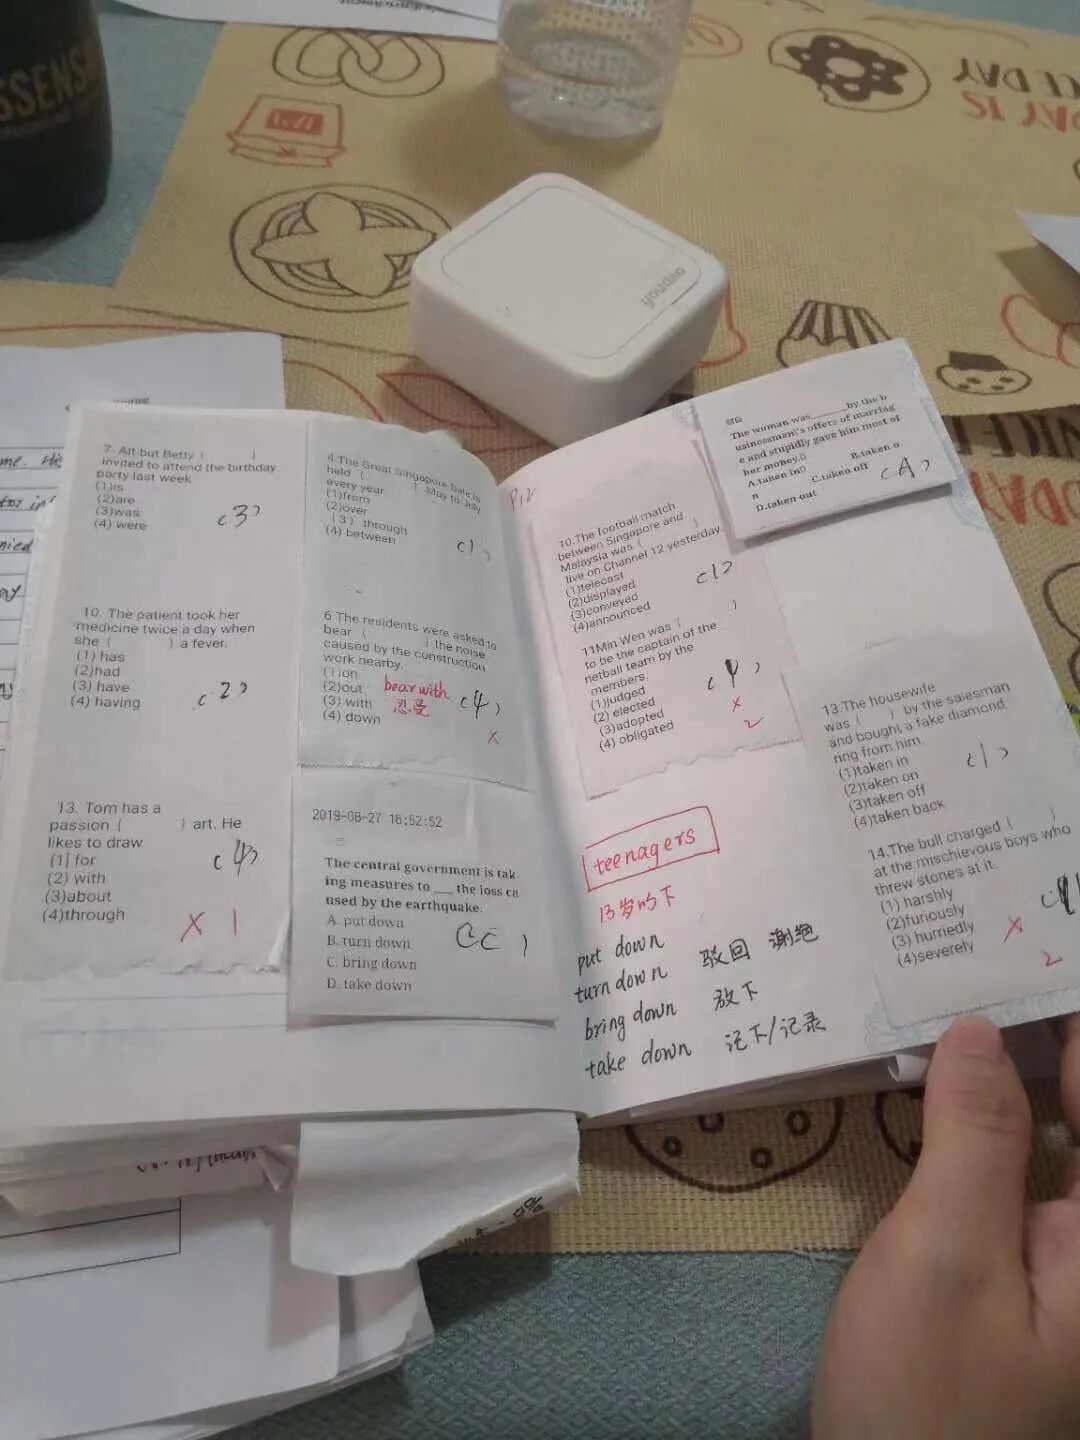 SSENS
youdao
7. All but Betty ( )
invited to attend the birthday
party last week
(1)is
(2)are
(3)was
(4) were
(3)
10. The patient took her
medicine twice a day when
she ( ) a fever.
(1) has
(2)had
(3) have
(4) having
(2)
13. Tom has a
passion ( ) art. He
likes to draw
(1) for
(2) with
(3)about
(4)through
(4)
X 1
4.The Great Singapore Sale is
held ( ) May to July
every year
(1)from
(2)over
(3) through
(4) between
(1)
6 The residents were asked to
bear ( ) the noise
caused by the construction
work nearby.
(1)on
(2)out
(3) with
(4) down
bear with
(4)
X
2019-08-27 16:52:52
The central government is tak
ing measures to ___ the loss ca
used by the earthquake.
A. put down
B. turn down
C. bring down
D. take down
(C)
P12
10.The football match
between Singapore and
Malaysia was ( )
live on Channel 12 yesterday.
(1)telecast
(2)displayed
(3)conveyed
(4)announced
(1)
11Min Wen was ( )
to be the captain of the
netball team by the
members.
(1)judged
(2) elected
(3)adopted
(4) obligated
(4)
X
2
teenagers
13岁的下
put down
turn down 驳回 谢绝
bring down 放下
take down 记下/记录
The woman was______by the b
usinessman's offers of marriag
e and stupidly gave him most of
her money.
A.taken in
B.taken o
n
C.taken off
D.taken out
(A)
13.The housewife
was ( ) by the salesman
and bought a fake diamond
ring from him.
(1)taken in
(2)taken on
(3)taken off
(4)taken back
(1)
14.The bull charged ( )
at the mischievous boys who
threw stones at it.
(1) harshly
(2)furiously
(3) hurriedly
(4)severely
X
2